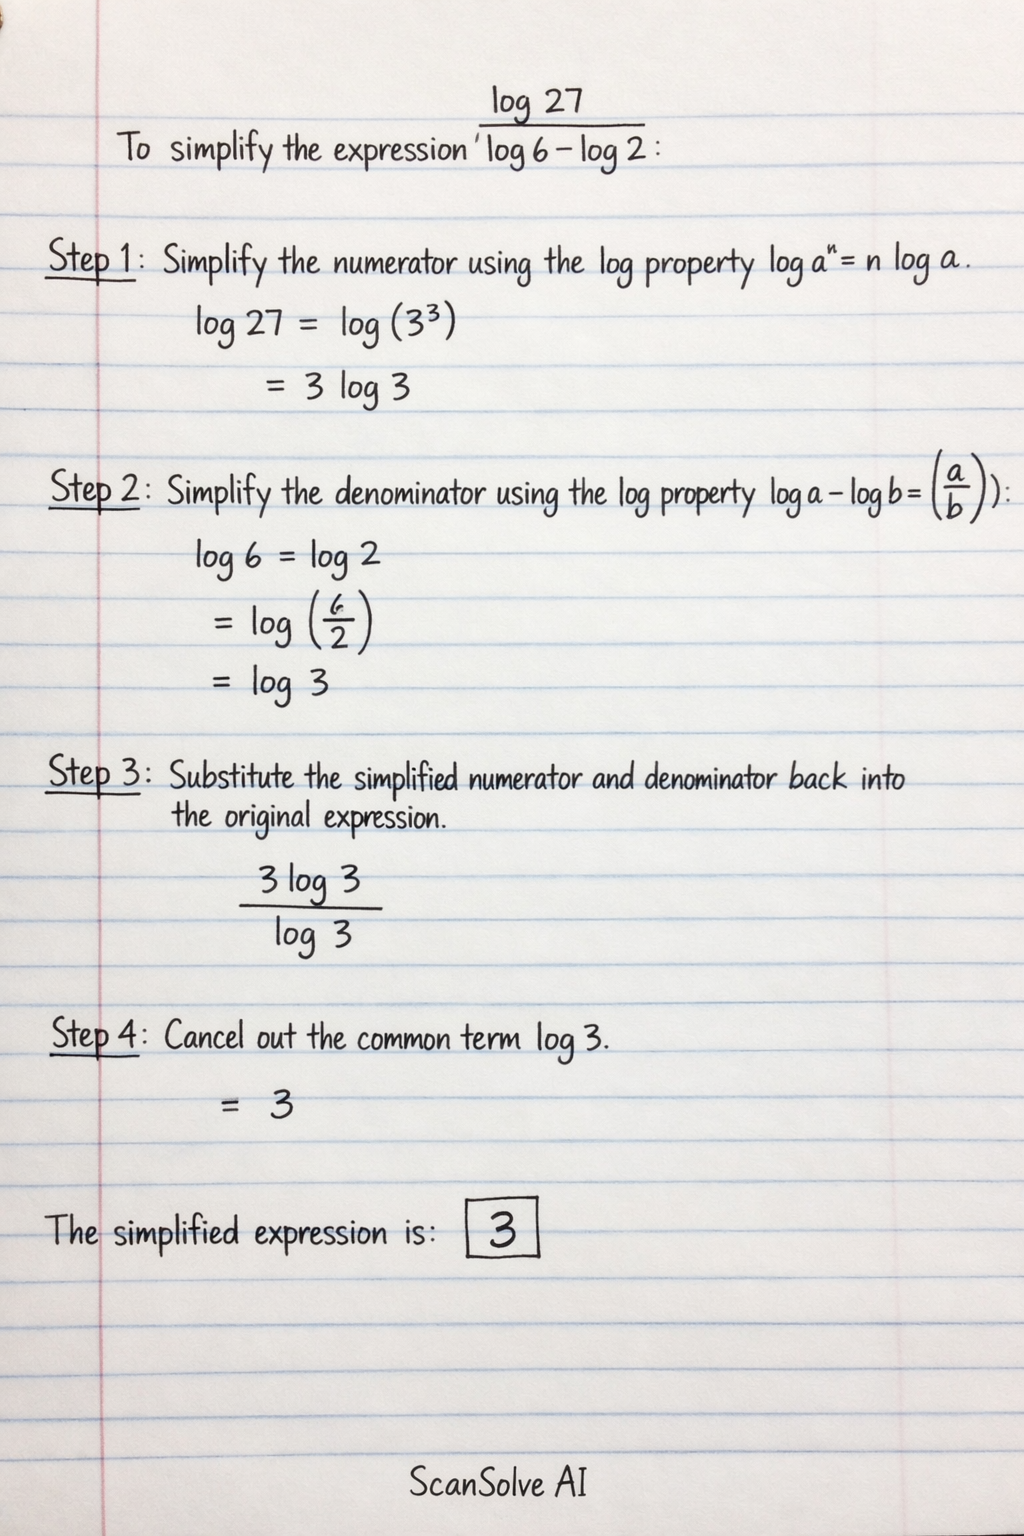 log 27
To simplify the expression ' log 6 − log 2 :
Step 1: Simplify the numerator using the log property log aⁿ = n log a.
log 27 = log (3³)
= 3 log 3
Step 2: Simplify the denominator using the log property log a − log b = (a/b)):
log 6 = log 2
= log (6/2)
= log 3
Step 3: Substitute the simplified numerator and denominator back into
the original expression.
3 log 3
log 3
Step 4: Cancel out the common term log 3.
= 3
The simplified expression is: 3
ScanSolve AI